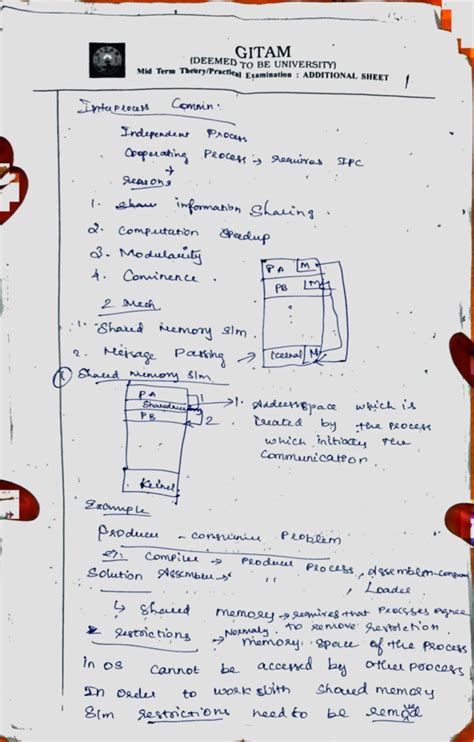 GITAM
(DEEMED TO BE UNIVERSITY)
Mid Term Theory/Practical Examination : ADDITIONAL SHEET
1
Interprocess Commn:
Independent Process
Cooperating Process → requires IPC
Reasons
1. information Sharing.
2. Computation Speedup
3. Modularity
4. Convinence.
2 Mech
1. Shared Memory S/m.
2. Message Passing
PA M
PB M
Kernel M
1 Shared memory S/m
PA
PB
Kernel
1
2
1. Address space which is
created by the process
which initiates the
Communication
Example
Producer - consumer Problem
eg: Compiler → producer Process,
Solution Assembler → " " , Loader
↳ Shared memory → requires that Processes agree
to remove restriction.
restrictions → Normally memory space of the process
In OS cannot be accessed by other process
In order to work with shared memory
S/m restrictions need to be